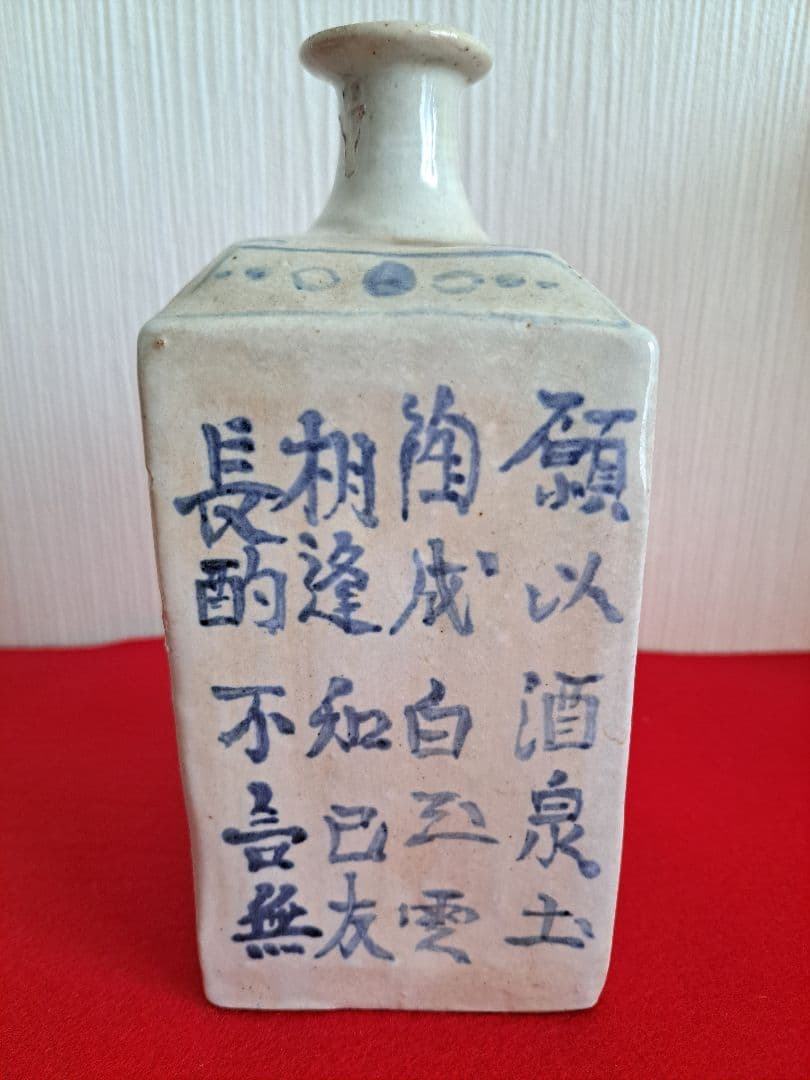 願以酒泉土
陶成白玉雲
相逢知己友
長酌不言無